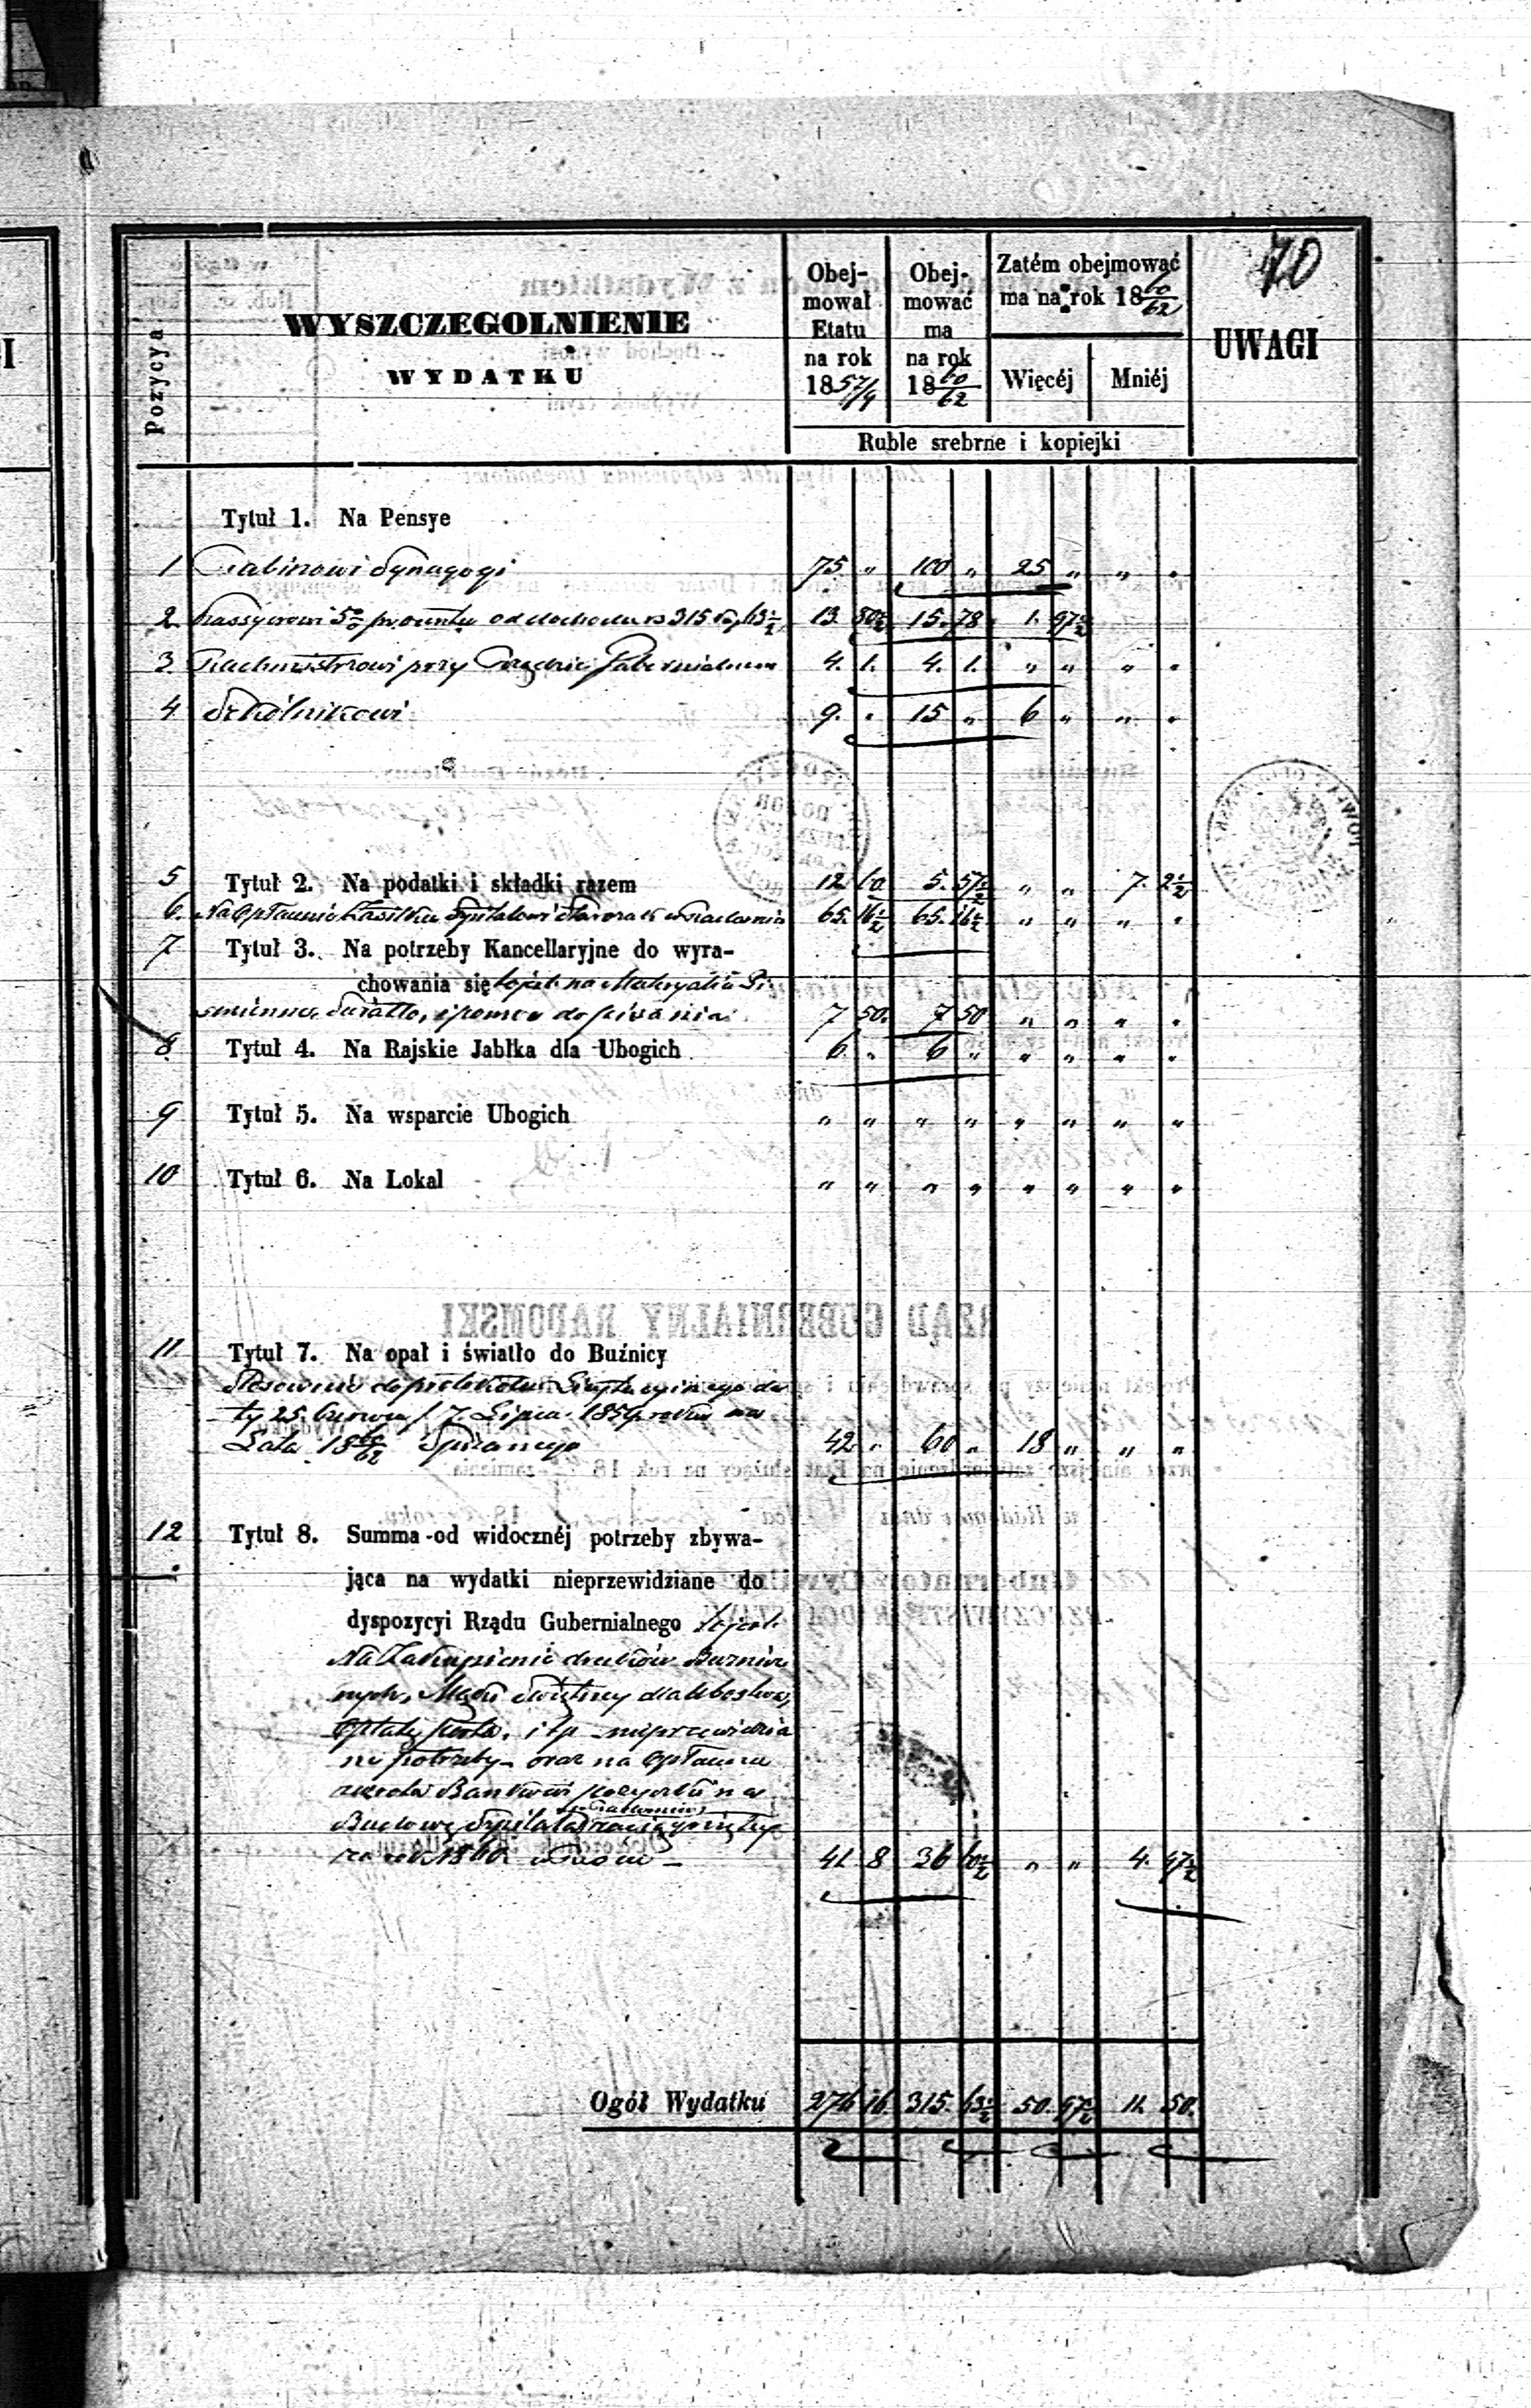 70
Pozycya
WYSZCZEGOLNIENIE
WYDATKU
Obej-
mował
Etatu
na rok
18 57/9
Obej-
mować
ma
na rok
18 60/62
Zatém obejmować
ma na rok 18 60/62
Więcéj Mniéj
UWAGI
Ruble srebrne i kopiejki
Tytuł 1. Na Pensye
1 Rabinowi Synagogi 75 „ 100 „ 25 „ „ „
2 Kassyerowi 5% procentu od dochodu rs 315 k 63½ 13 80½ 15 78 1 97½
3 przy Rządzie Gubernialnym 4. 1. 4. 1. „ „ „ „
4 Szkólnikowi 9. „ 15 „ 6 „ „ „
5 Tytuł 2. Na podatki i składki razem 12 60 5. 57½ „ „ 7. 2½
6. Na Opłacenie Zasiłku Szpitalowi 65. 16½ 65. 16½ „ „ „ „
7 Tytuł 3. Na potrzeby Kancellaryjne do wyra-
chowania się to jest na Materyały Pi-
śmienne, Światło, i pomoc do pisania 7 50. 7 50 „ „ „ „
8 Tytuł 4. Na Rajskie Jabłka dla Ubogich 6 „ 6 „ „ „ „ „
9 Tytuł 5. Na wsparcie Ubogich „ „ „ „ „ „ „ „
10 Tytuł 6. Na Lokal „ „ „ „ „ „ „ „
11 Tytuł 7. Na opał i światło do Buźnicy
Stosownie do protokołu Licytacyjnego da-
ty 25. Czerwca / 7. Lipca 1859 roku na
Lata 18 60/62 Spisanego 42 „ 60 „ 18 „ „ „
12 Tytuł 8. Summa od widocznéj potrzeby zbywa-
jąca na wydatki nieprzewidziane do
dyspozycyi Rządu Gubernialnego to jest
Na Zakupienie druków Buźnicz-
nych, Mąki dla Ubostwa,
Opłatę porta, i t p nieprzewidzia-
ne potrzeby oraz na Opłacenie
Bankowi pożyczki na
Budowę Szpitala
za rok 1860 41 8 36 60½ „ „ 4. 47½
Ogół Wydatku 276 16. 315. 63½ 50. 97½ 11. 50.